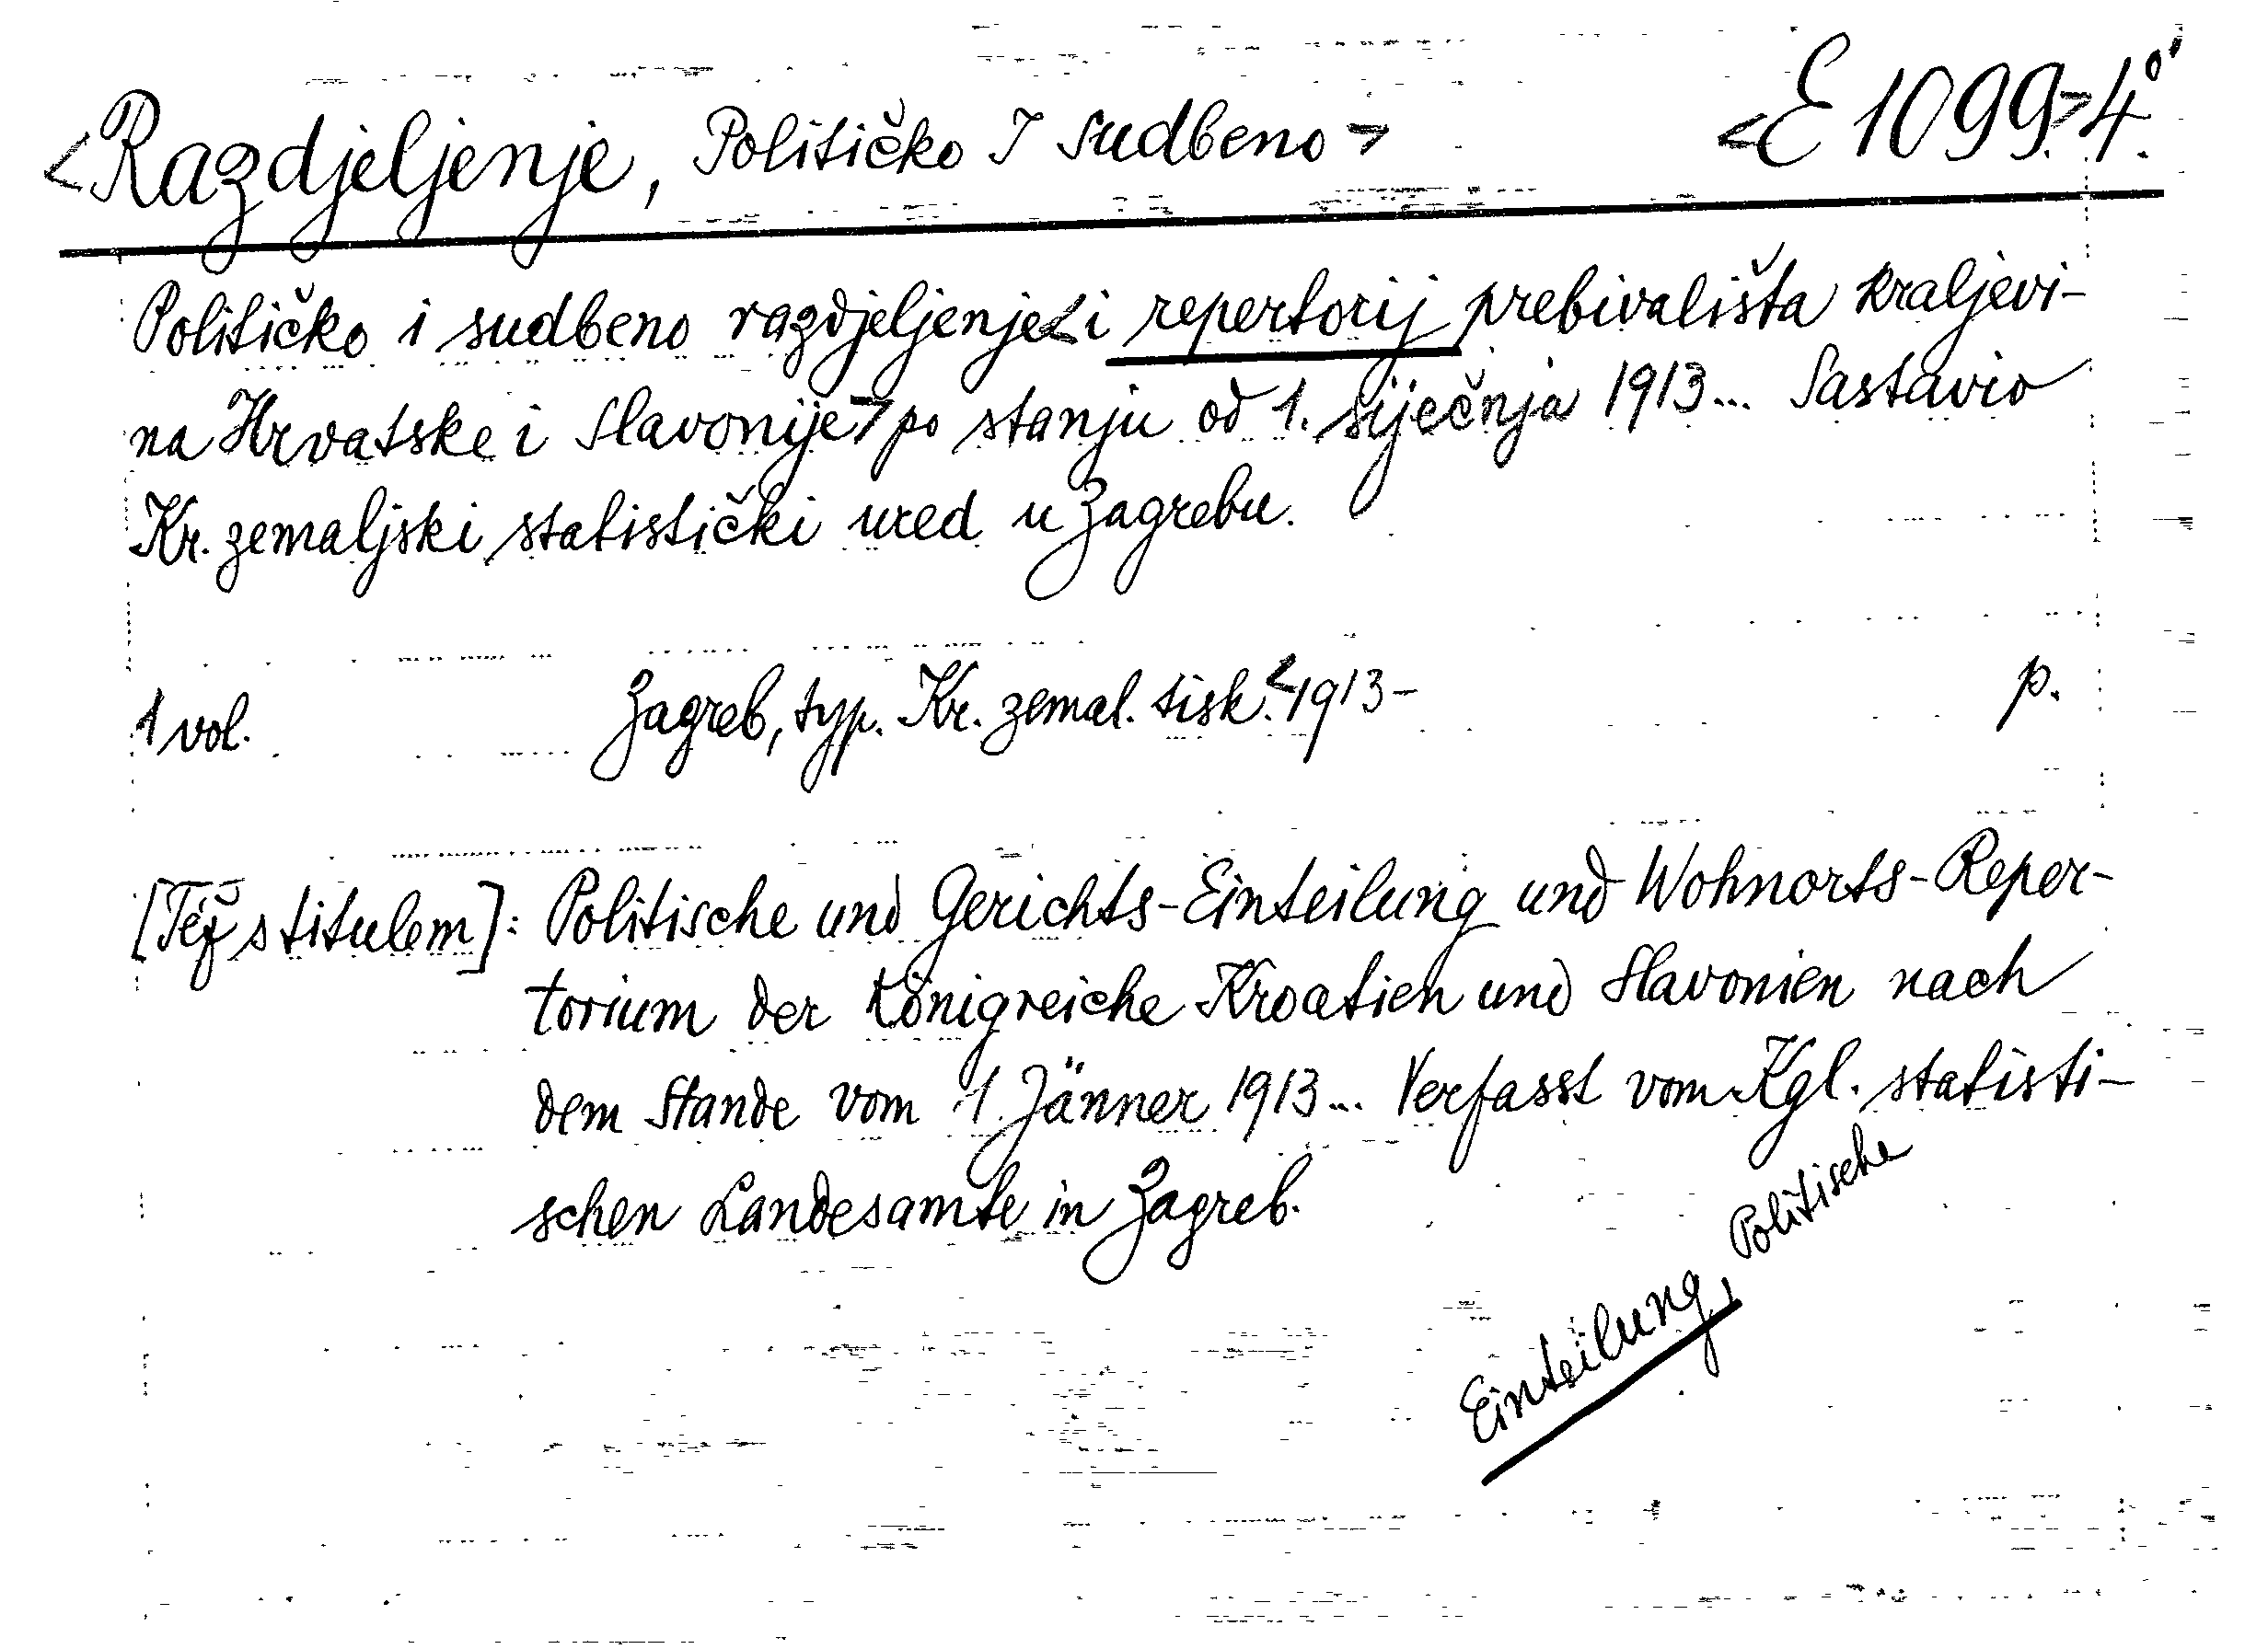 <Razdjeljenje, Političko I sudbeno> <E 1099.> 4°.
Političko i sudbeno razdjeljenje <i repertorij prebivališta kraljevi-
na Hrvatske i Slavonije> po stanju od 1. siječnja 1913... Sastavio
Kr. zemaljski statistički ured u Zagrebu.
1 vol. Zagreb, typ. Kr. zemal. tisk. <1913- p.
[Též s titulem]: Politische und Gerichts-Einteilung und Wohnorts-Reper-
torium der Königreiche Kroatien und Slavonien nach
dem Stande vom 1. Jänner 1913... Verfasst vom Kgl. statisti-
schen Landesamte in Zagreb.
Einteilung, Politische